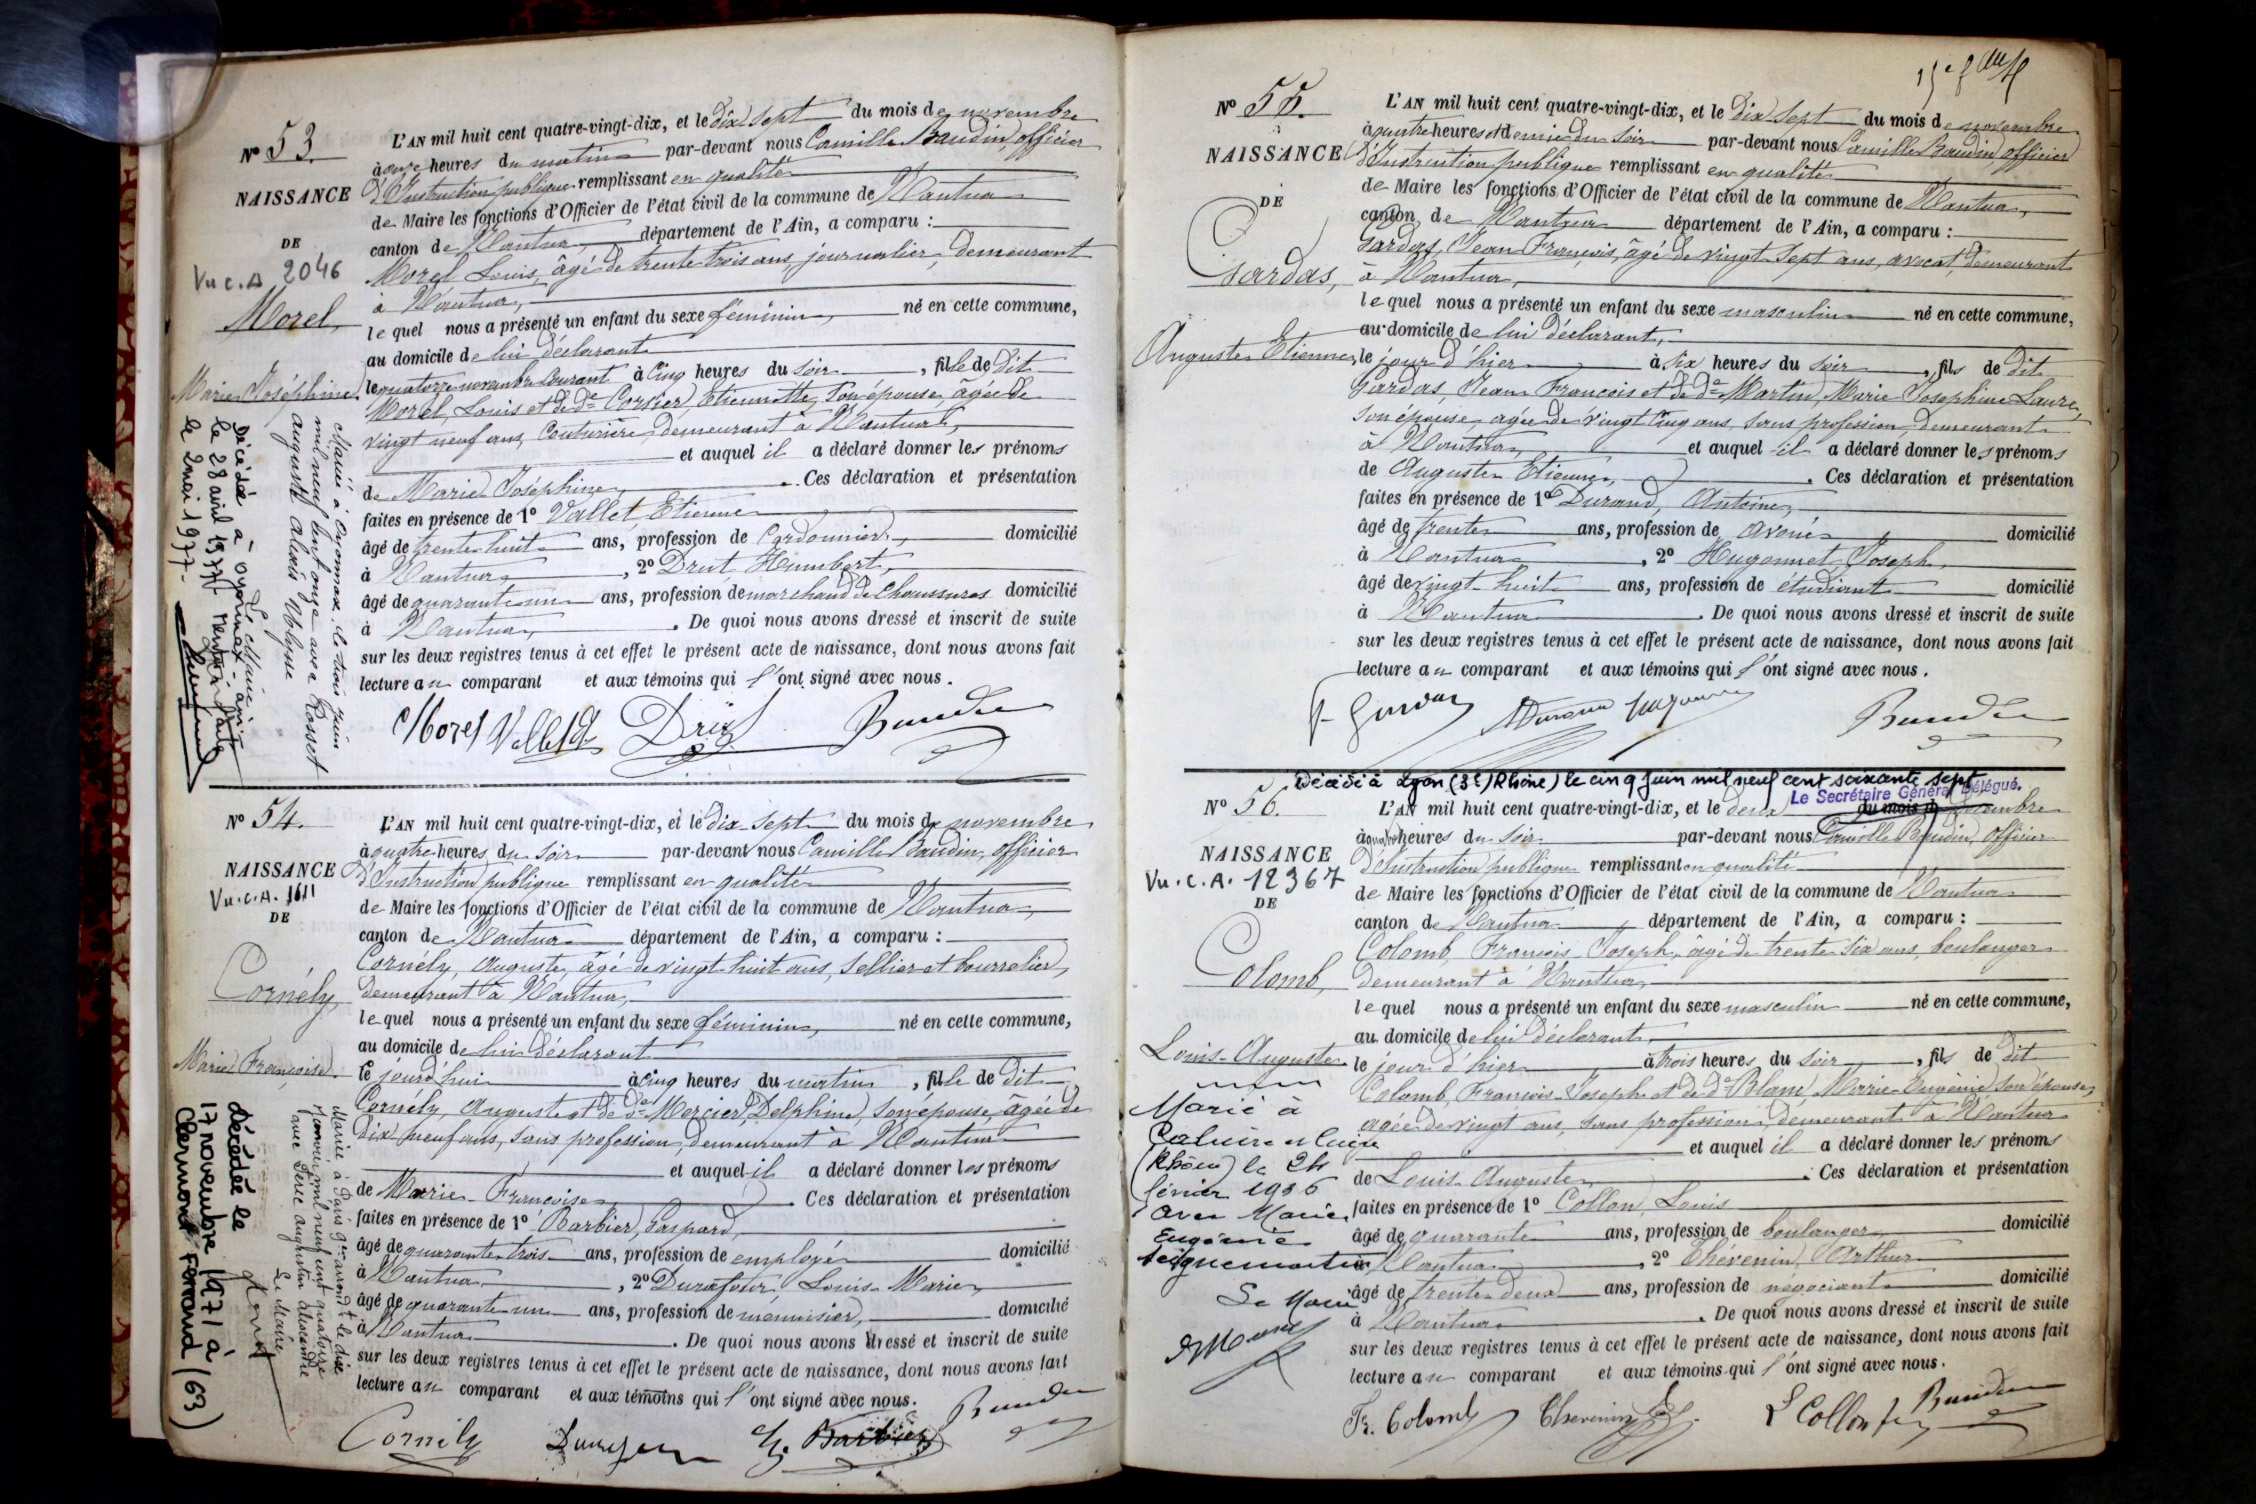 Nº 53.
NAISSANCE
DE
Vu c. A 2046
Morel,
Marie Joséphine.
L'AN mil huit cent quatre-vingt-dix, et le dix sept du mois de novembre
à onze heures du matin par-devant nous Camille Baudin, officier
d'Instruction publique remplissant en qualité
de Maire les fonctions d'Officier de l'état civil de la commune de Nantua
canton de Nantua, département de l'Ain, a comparu :
Morel Louis, âgé de trente trois ans, journalier, demeurant
à Nantua,
lequel nous a présenté un enfant du sexe féminin, né en cette commune,
au domicile de lui déclarant
le quatorze novembre courant à cinq heures du soir, fille de dit
Morel, Louis et de de Cornier, Etiennette, son épouse, âgée de
vingt neuf ans, couturière, demeurant à Nantua,
et auquel il a déclaré donner les prénoms
de Marie Joséphine, Ces déclaration et présentation
faites en présence de 1º Vallet, Etienne
âgé de trente huit ans, profession de Cordonnier, domicilié
à Nantua, 2º Drut, Humbert,
âgé de quarante un ans, profession de marchand de chaussures domicilié
à Nantua, . De quoi nous avons dressé et inscrit de suite
sur les deux registres tenus à cet effet le présent acte de naissance, dont nous avons fait
lecture au comparant et aux témoins qui l'ont signé avec nous.
Morel Vallet Drut Baudin
Mariée à Oyonnax le trois juin
mil neuf cent onze avec Rosset
Auguste Aloïs
Le Maire
Décédée à Oyonnax - ain
le 28 avril 1977 Mention faite
le 2 mai 1977 -
Nº 54.
NAISSANCE
Vu. c. A. 1611
DE
Cornély,
Marie Françoise.
L'AN mil huit cent quatre-vingt-dix, et le dix sept du mois de novembre
à quatre heures du soir par-devant nous Camille Baudin, officier
d'Instruction publique remplissant en qualité
de Maire les fonctions d'Officier de l'état civil de la commune de Nantua,
canton de Nantua département de l'Ain, a comparu :
Cornély, Auguste, âgé de vingt huit ans, sellier et bourrelier,
demeurant à Nantua,
lequel nous a présenté un enfant du sexe féminin, né en cette commune,
au domicile de lui déclarant
le jourd'hui à cinq heures du matin, fille de dit
Cornély, Auguste et de de Mercier, Delphine, son épouse, âgée de
dix neuf ans, sans profession, demeurant à Nantua
et auquel il a déclaré donner les prénoms
de Marie Françoise, Ces déclaration et présentation
faites en présence de 1º Barbier, Gaspard,
âgé de quarante trois ans, profession de employé domicilié
à Nantua, 2º Durafour, Louis Marie,
âgé de quarante un ans, profession de menuisier, domicilié
à Nantua . De quoi nous avons dressé et inscrit de suite
sur les deux registres tenus à cet effet le présent acte de naissance, dont nous avons fait
lecture au comparant et aux témoins qui l'ont signé avec nous.
Cornély G. Barbier Baudin
Mariée à Paris arrond t le dix
janvier mil neuf cent quatorze
avec Augustin Alexandre
Le Maire
décédée le
17 novembre 1971 à
Clermont Ferrand (63)
Nº 55.
NAISSANCE
DE
Gardas,
Auguste Etienne,
L'AN mil huit cent quatre-vingt-dix, et le dix sept du mois de novembre
à quatre heures et demie du soir par-devant nous Camille Baudin, officier
d'Instruction publique remplissant en qualité
de Maire les fonctions d'Officier de l'état civil de la commune de Nantua,
canton de Nantua département de l'Ain, a comparu :
Gardas, Jean François, âgé de vingt sept ans, avocat, demeurant
à Nantua,
lequel nous a présenté un enfant du sexe masculin né en cette commune,
au domicile de lui déclarant,
le jour d'hier à six heures du soir, fils de dit
Gardas, Jean François et de de Martin, Marie Josephine Laure,
son épouse, agée de vingt cinq ans, sans profession, demeurant
à Nantua, et auquel il a déclaré donner les prénoms
de Auguste Etienne, . Ces déclaration et présentation
faites en présence de 1º Durand, Antoine,
âgé de trente ans, profession de avoué domicilié
à Nantua, 2º Hugonnet, Joseph,
âgé de vingt huit ans, profession de étudiant domicilié
à Nantua . De quoi nous avons dressé et inscrit de suite
sur les deux registres tenus à cet effet le présent acte de naissance, dont nous avons fait
lecture au comparant et aux témoins qui l'ont signé avec nous.
Gardas Durand Baudin
Décédé à Lyon (3e) Rhône) le cinq juin mil neuf cent soixante sept
Le Secrétaire Général Délégué.
Nº 56.
NAISSANCE
Vu. c. A. 12367
DE
Colomb,
Louis-Auguste
L'AN mil huit cent quatre-vingt-dix, et le du mois de novembre
à quatre heures du soir par-devant nous Camille Baudin, officier
d'Instruction publique remplissant en qualité
de Maire les fonctions d'Officier de l'état civil de la commune de Nantua
canton de Nantua département de l'Ain, a comparu :
Colomb, François Joseph, âgé de trente six ans, boulanger
demeurant à Nantua,
lequel nous a présenté un enfant du sexe masculin né en cette commune,
au domicile de lui déclarant,
le jour d'hier à trois heures du soir, fils de dit
Colomb, François Joseph et de de Blanc, Marie Eugénie, son épouse,
agée de vingt ans, sans profession, demeurant à Nantua
et auquel il a déclaré donner les prénoms
de Louis Auguste, . Ces déclaration et présentation
faites en présence de 1º Collon, Louis
âgé de quarante ans, profession de boulanger, domicilié
à Nantua, 2º Thévenin, Arthur
âgé de trente deux ans, profession de négociant domicilié
à Nantua . De quoi nous avons dressé et inscrit de suite
sur les deux registres tenus à cet effet le présent acte de naissance, dont nous avons fait
lecture au comparant et aux témoins qui l'ont signé avec nous.
Fr. Colomb Thevenin L Collon Baudin
Marié à
Caluire et Cuire
(Rhône) le 24
février 1936
avec Marie
Eugénie
Seignemartin
Le Maire